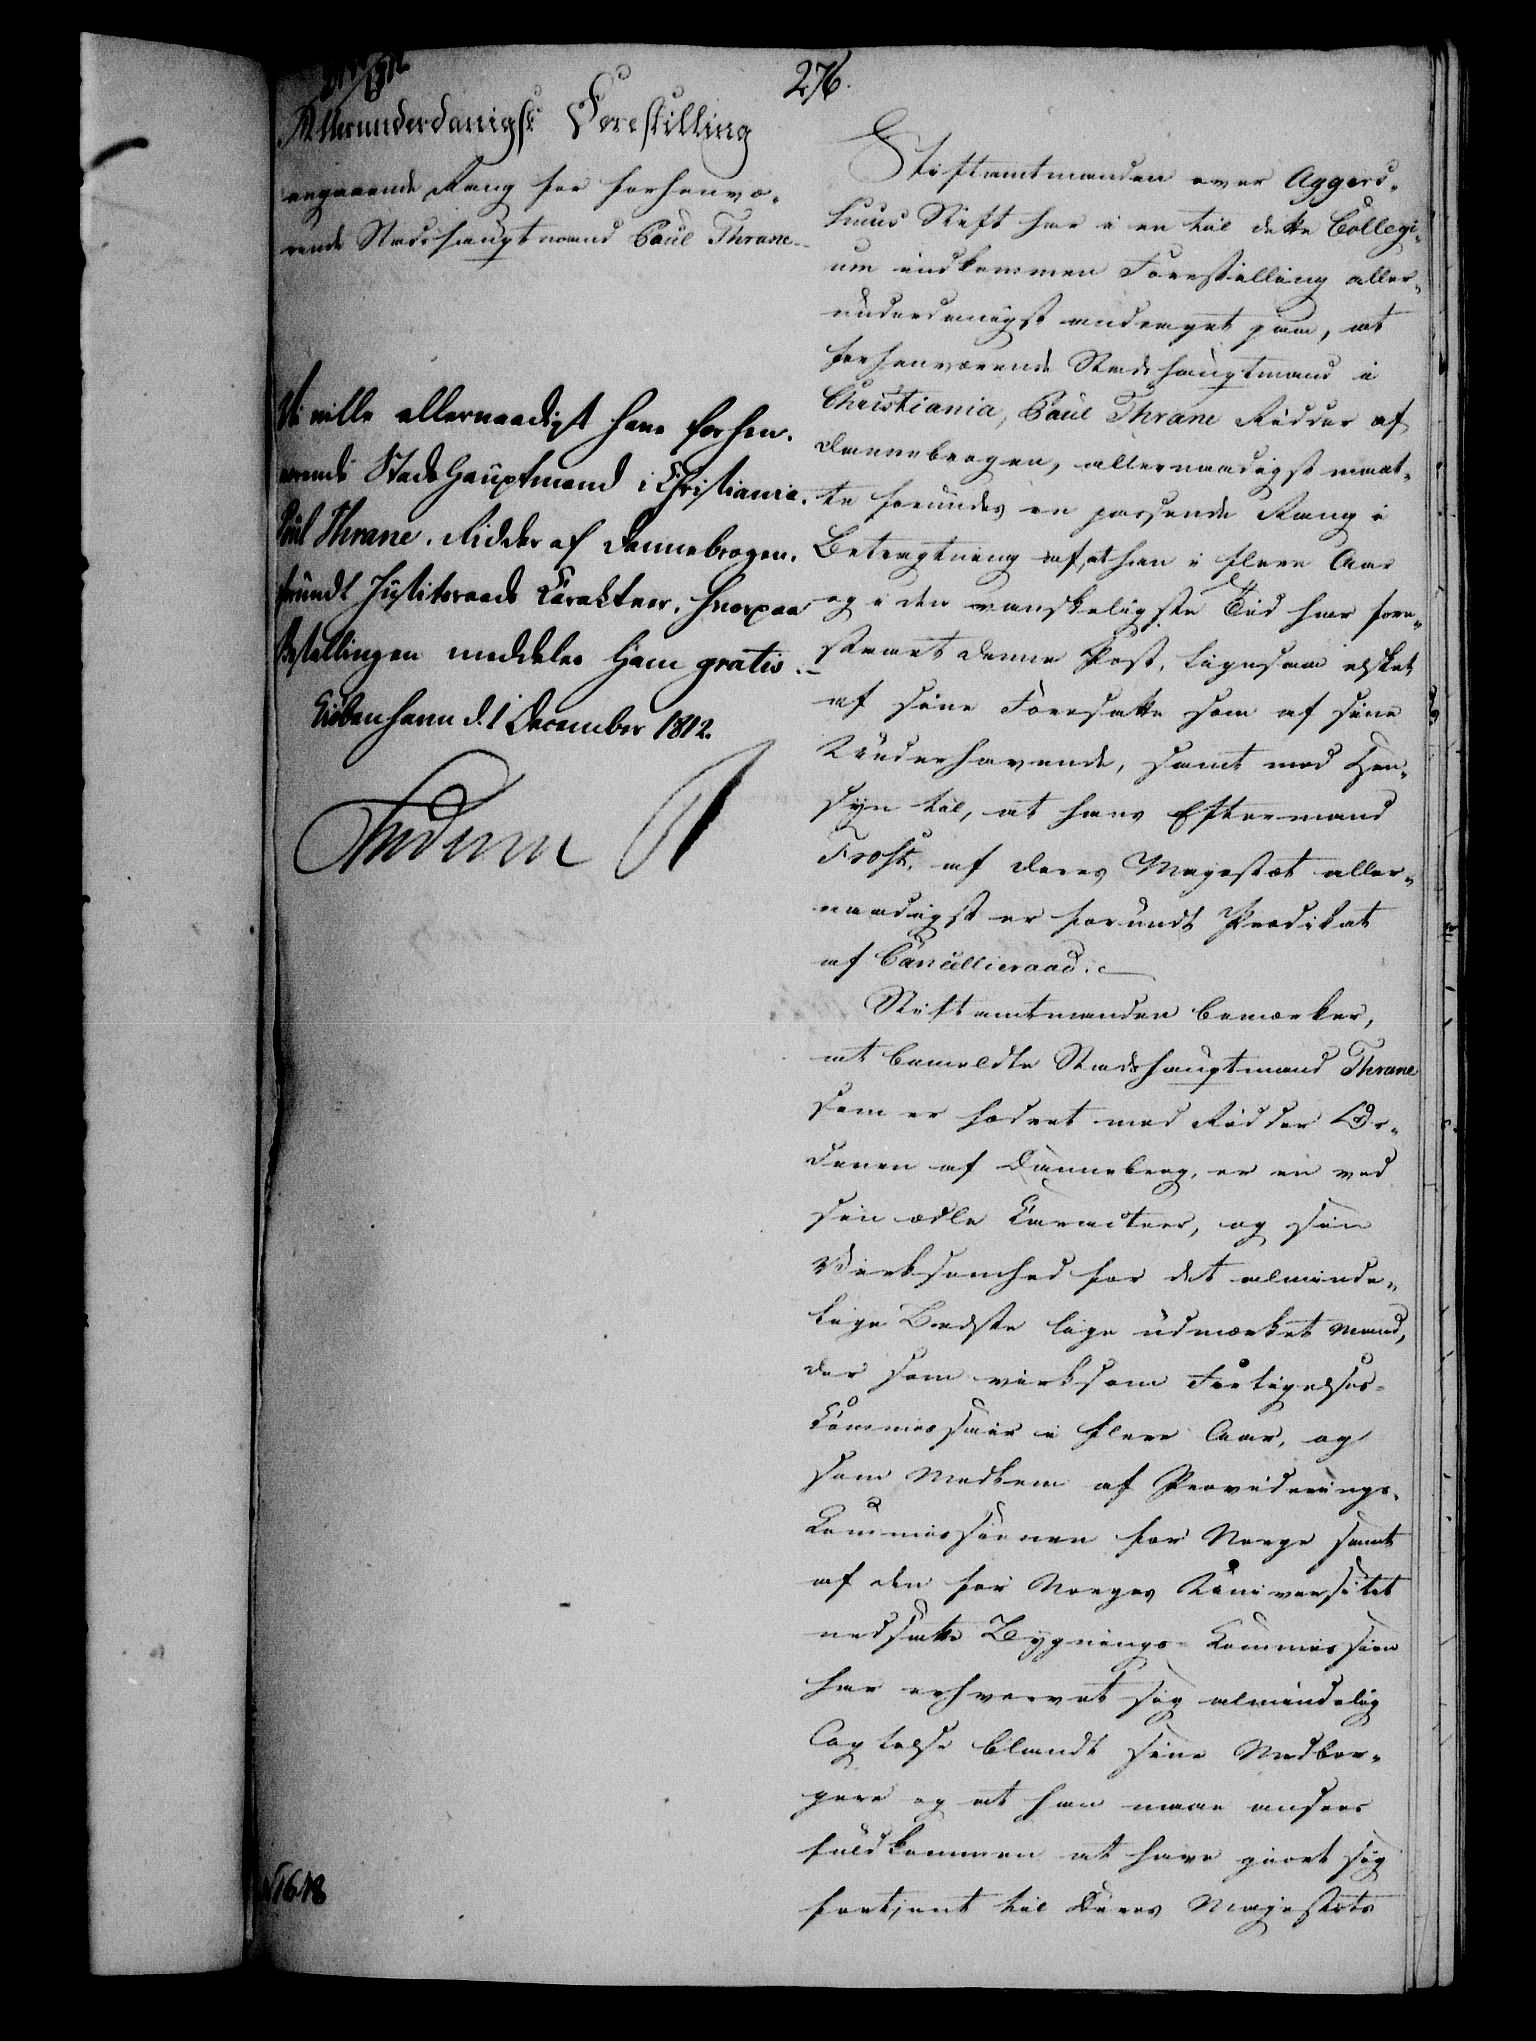 276.
Allerunderdanigst Forestilling
angaaende Rang for forhenvæ-
rende Stadshauptmand Paul Thrane.
Vi ville allernaadigst have forhen-
værende Stadshauptmand i Christiania,
Paul Thrane, Ridder af Dannebrogen,
forundt Justitsraads Karakteer, hvorpaa
Bestallingen meddeles ham gratis.
Kiøbenhavn d. 1 December 1812.
Frederik R
N 1648
Stiftamtmanden over Aggers-
huus Stift har i en til dette Collegi-
um indkommen Forestilling aller-
underdanigst andraget paa, at
forhenværende Stadshauptmand i
Christiania, Paul Thrane Ridder af
Dannebrogen, allernaadigst maat-
te forundes en passende Rang i
Betragtning af, at han i flere Aar
og i den vanskeligste Tid har fore-
staaet denne Post, ligesaa elsket
af sine Foresatte som af sine
Underhavende, samt med Hen-
syn til, at hans Eftermand
Frost, af Deres Majestæt aller-
naadigst er forundt Prædikat
af Cancellieraad.
Stiftamtmanden bemærker,
at bemeldte Stadshauptmand Thrane
som er hædret med Ridder Or-
denen af Danneberg, er en ved
sin ædle Caracteer, og sin
Virksomhed for det alminde-
lige Bedste lige udmærket Mand,
der som virksom Forligelses-
Kommissair i flere Aar, og
som Medlem af Providerings-
Kommissionen for Norge samt
af den for Norges Universitet
nedsatte Bygnings-Kommission
har erhvervet sig almindelig
Agtelse blandt sine Medbor-
gere og at han maae ansees
fuldkommen at have giort sig
fortient til Deres Majestæts